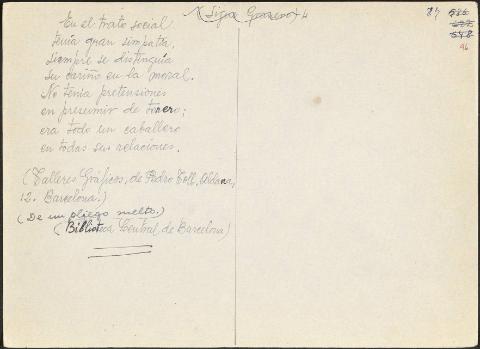 (Sigue Granero) 4
87 586
548
96
En el trato social
tenía gran simpatía,
siempre se distinguía
su cariño en la moral.
No tenía pretensiones
en presumir de torero;
era todo un caballero
en todas sus relaciones.
(Talleres Gráficos, de Pedro Toll, Aldana,
12. Barcelona.)
(De un pliego suelto.)
(Biblioteca Central de Barcelona)